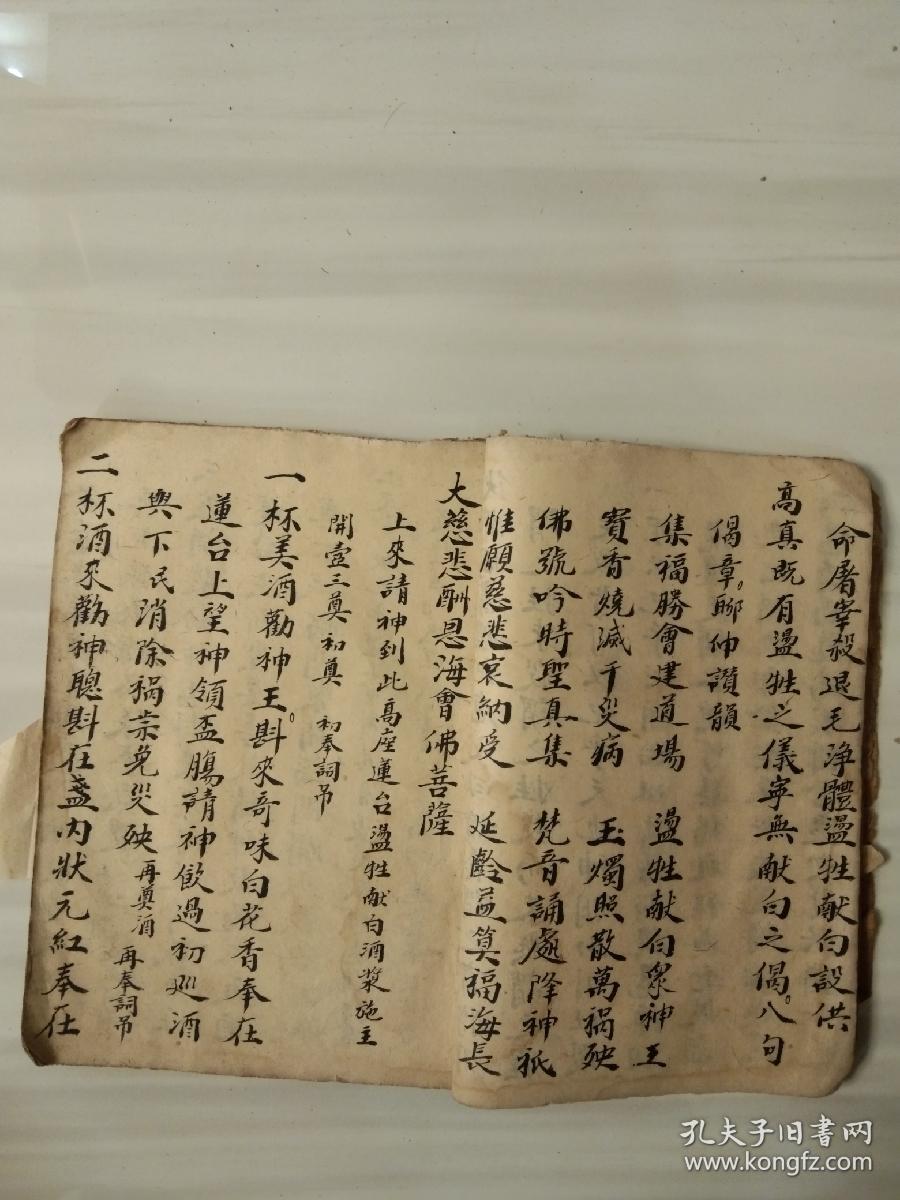 命屠宰殺退毛淨體盪牲献白設供
高真既有盪牲之儀寧無献白之偈。八句
偈章。聊伸讚韻
集福勝會建道場　盪牲献白衆神王
寶香燒滅千災病　玉燭照散萬禍殃
佛號吟時聖真集　梵音誦處降神祇
惟願慈悲哀納受　延齡益算福海長
大慈悲酬恩海會佛菩薩
上來請神到此高座蓮台盪牲献白酒漿施主
開壺三奠初奠　初奉詞吊
一杯美酒勸神王。斟來哥味白花香奉在
蓮台上望神領盃膓請神飲過初廵酒
與下民消除禍祟免災殃　再奠酒　再奉詞吊
二杯酒來勸神聰斟在盞内狀元紅奉在
孔夫子旧書网
www.kongfz.com